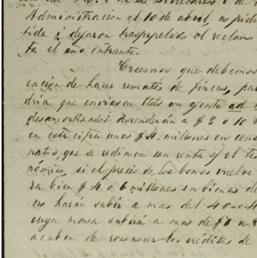 Administracion el 10 de abril, no pidie
tida i dejaron traspapelado el reclam
ta el año entrante.
Creemos que debemos
cacion de hacer remates de fincas, para
dria que enviasen uds un ajente ad
desamortizados ascenderán a $ 8 o 10
en esta cifra unos $ 4. millones en censo
natos que se redimen con renta s/ el tes
nómico, si el precio de los bonos vuelve
ra bien $ 4 o 6 millones en bienes de
no harán subir a mas del 40
cuya masa subirá a mas de $
acaben de reconocer los créditos de